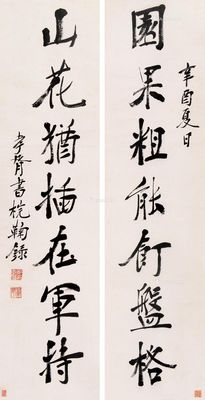 辛酉夏日
園果粗能飣盤格
山花猶插在軍持
孝胥書梡鞠録